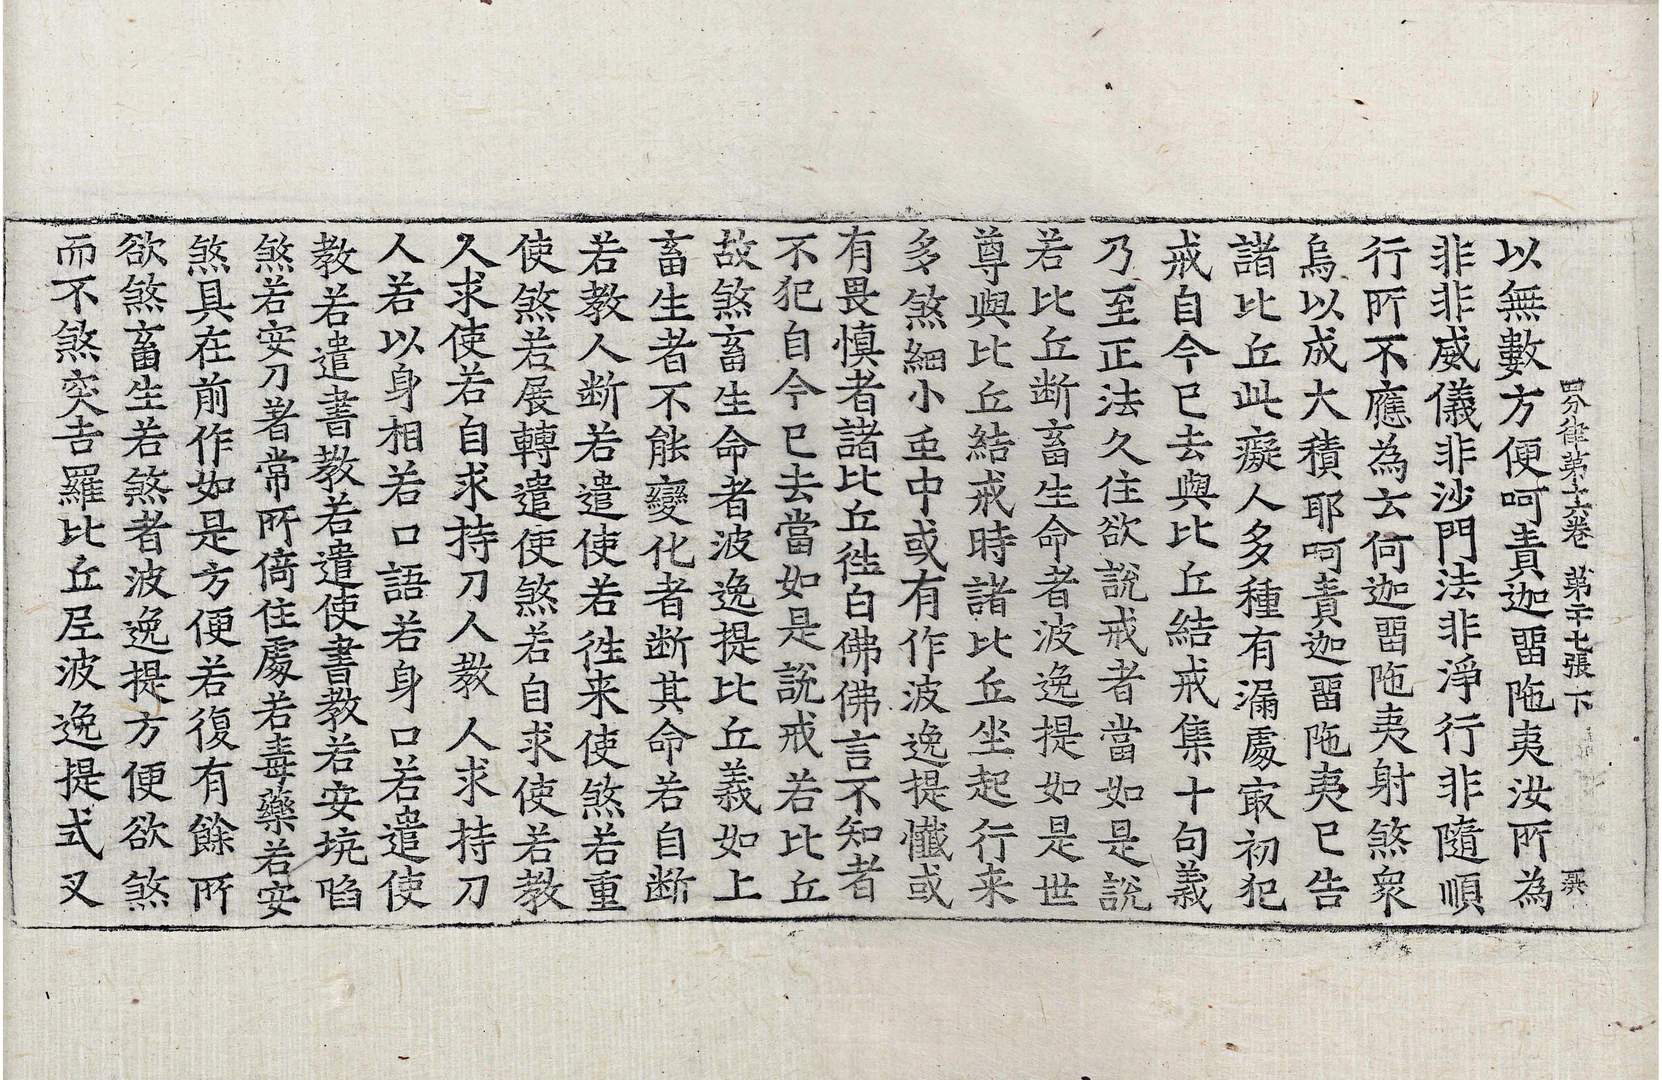 四分律第十六卷 第二十七張 下
以無數方便呵責迦畱陁夷汝所為
非非威儀非沙門法非淨行非隨順
行所不應為云何迦畱陁夷射煞衆
烏以成大積耶呵責迦畱陁夷已告
諸比丘此癡人多種有漏處㝡初犯
戒自今已去與比丘結戒集十句義
乃至正法久住欲說戒者當如是說
若比丘断畜生命者波逸提如是世
尊與比丘結戒時諸比丘坐起行来
多煞細小虫中或有作波逸提懺或
有畏慎者諸比丘徃白佛佛言不知者
不犯自今已去當如是說戒若比丘
故煞畜生命者波逸提比丘義如上
畜生者不能變化者断其命若自断
若教人断若遣使若徃来使煞若重
使煞若展轉遣使煞若自求使若教
人求使若自求持刀人教人求持刀
人若以身相若口語若身口若遣使
教若遣書教若遣使書教若安坑陷
煞若安刀著常所倚住處若毒藥若安
煞具在前作如是方便若復有餘所
欲煞畜生若煞者波逸提方便欲煞
而不煞突吉羅比丘尼波逸提式叉